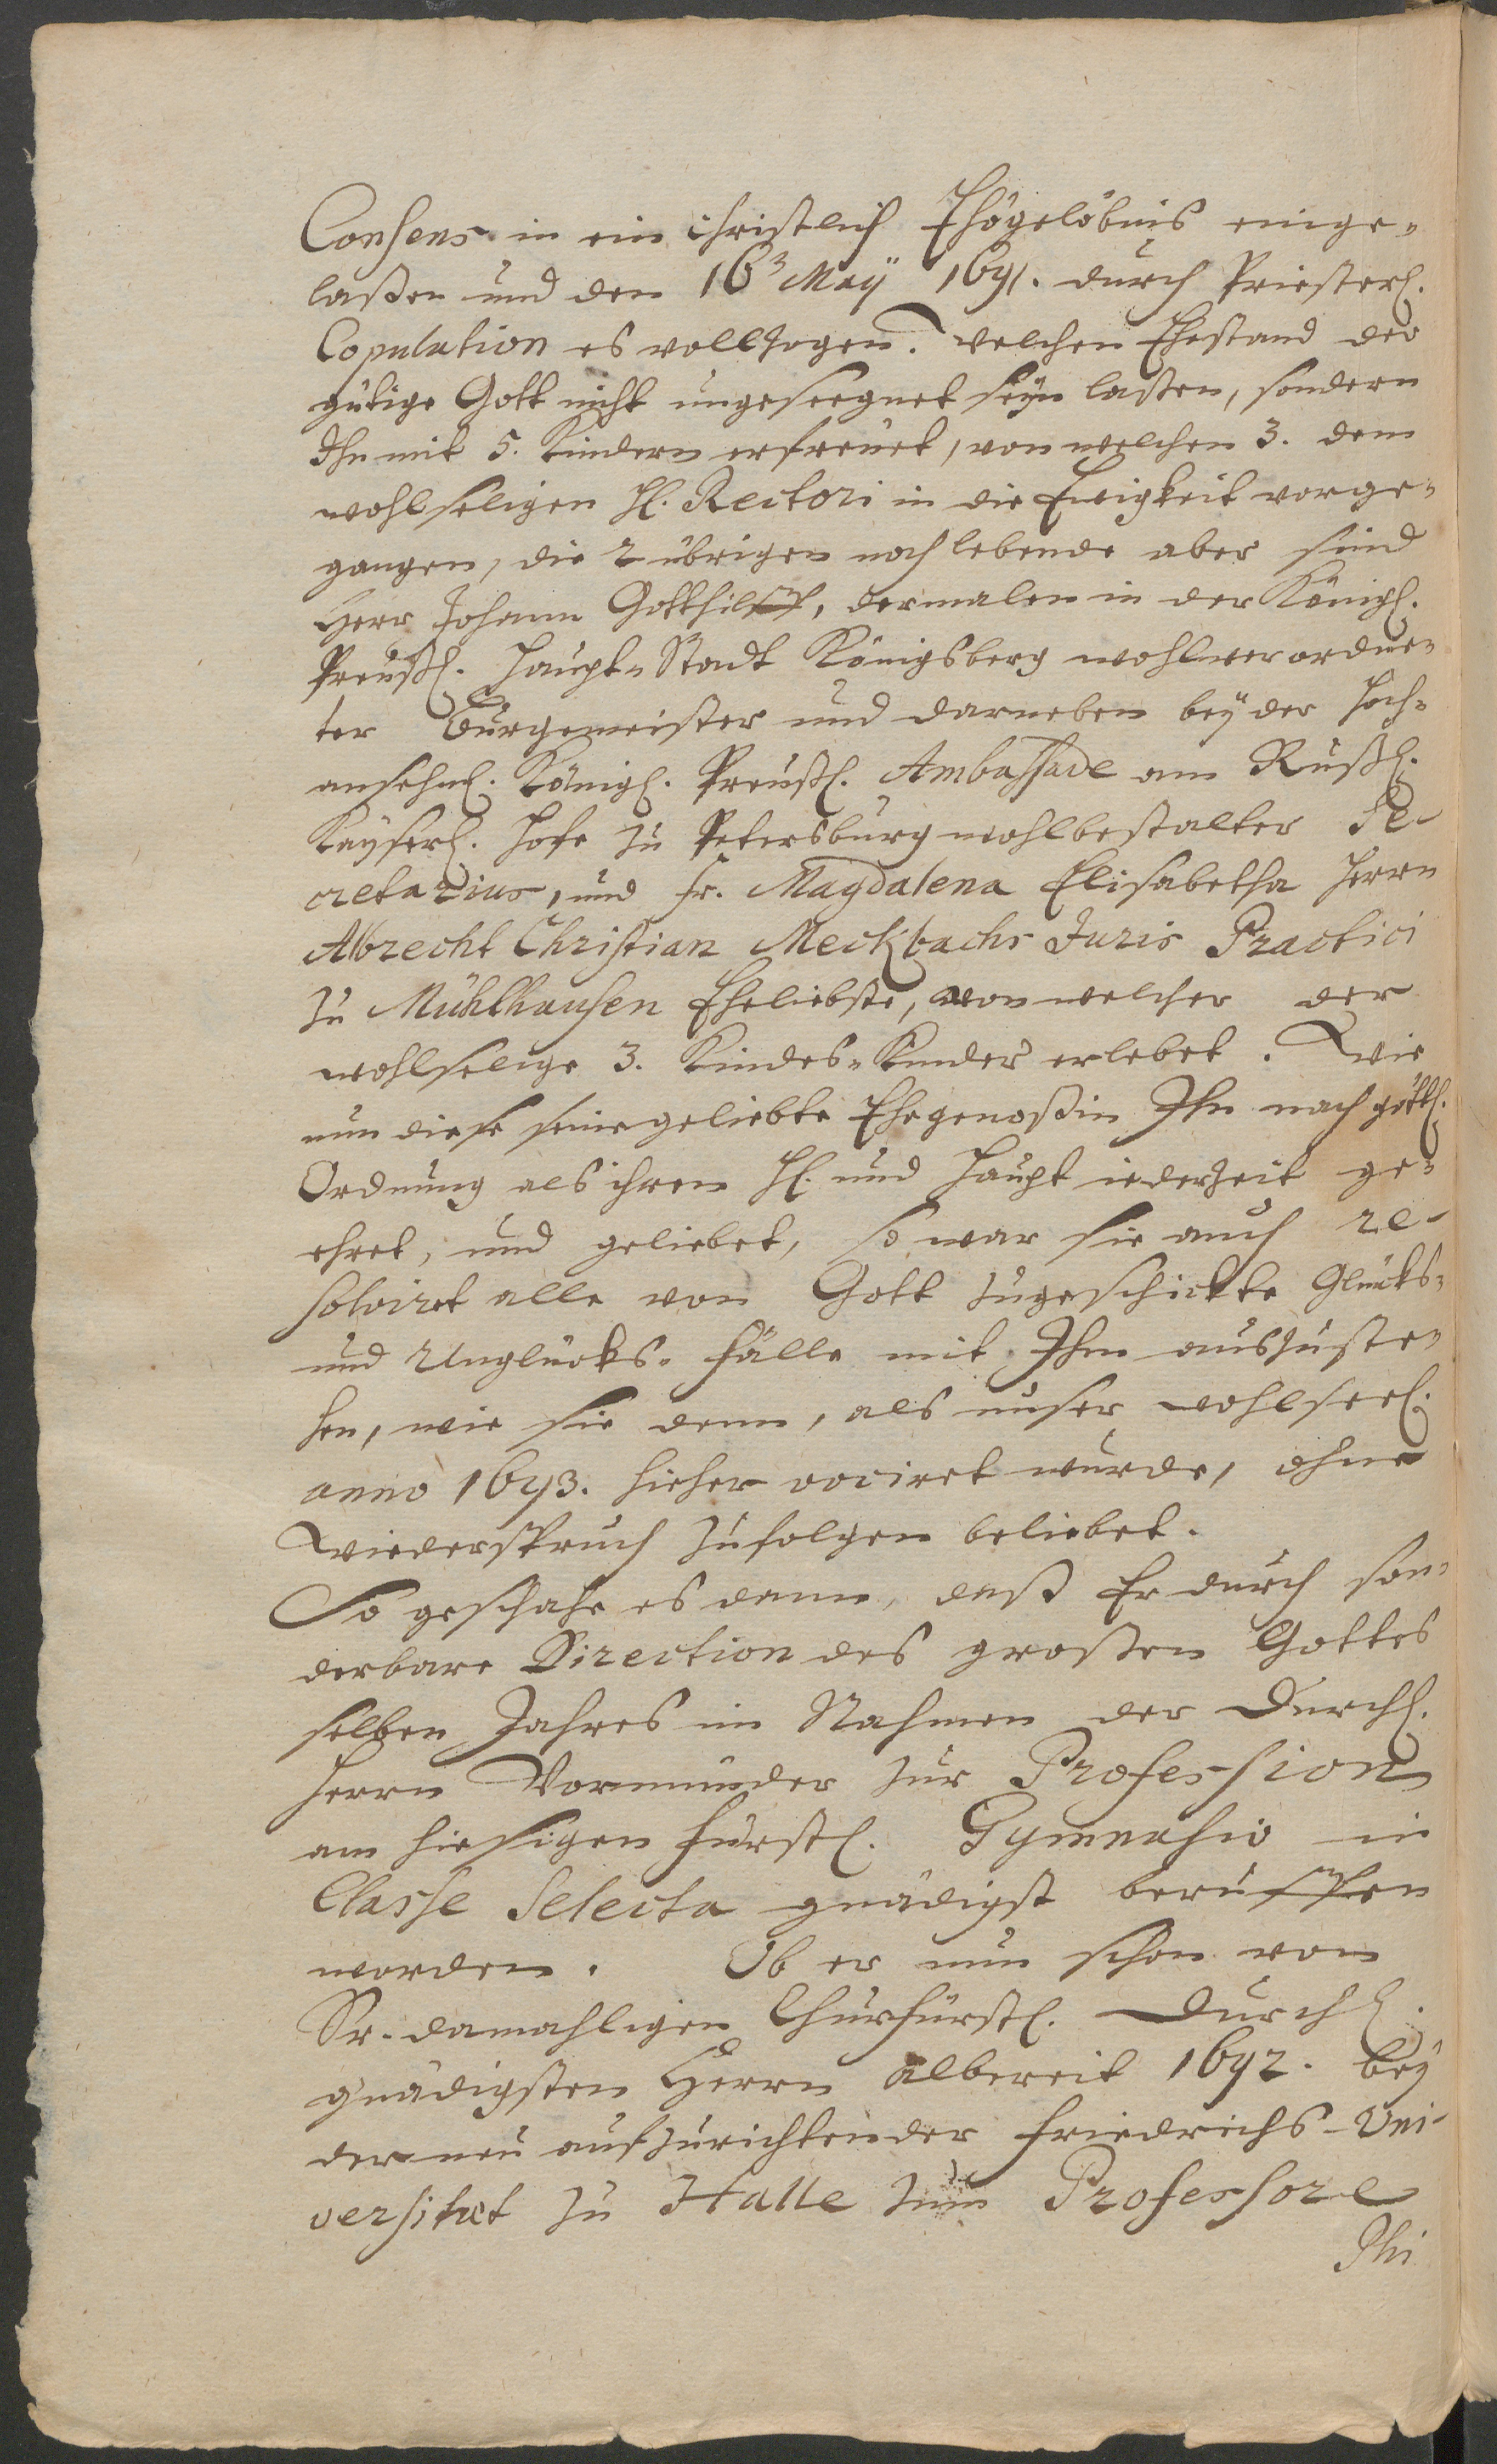 Consens in ein christlich Ehegelöbnis einge-
laßen und den 16 Maÿ 1691. durch Priesterl.
Copulation es vollzogen. Welchen Ehestand der
gütige Gott nicht ungeseegnet seÿn laßen, sondern
Ihn mit 5. Kindern erfreuet, von welchen 3. dem
wohlseligen H. Rectori in die Ewigkeit vorge-
gangen, die 2 übrigen noch lebende aber sind
Herr Johann Gotthilff, dermalen in der Königl.
Preußl. Haupt-Stadt Königsberg wohlverordne-
ter Bürgemeister und darneben beÿ der hoch-
ansehnl. Königl. Preußl. Ambassade am Rußl.
Kaÿserl. Hofe zu Petersburg wohlbestalter Se-
cretarius, und Fr. Magdalena Elisabetha Herrn
Albrecht Christian Meckbachs Juris Practici
zu Mühlhausen Eheliebste, von welcher der
wohlselige 3. Kindes-Kinder erlebet. Wie
nun diese seine geliebte Ehegenoßin Ihn nach göttl.
Ordnung als ihren H. und Haupt iederzeit ge-
ehret, und geliebet, so war sie auch re-
solviret alle von Gott zugeschickte Glücks-
und Unglücks-Fälle mit Ihm auszuste-
hen, wie sie denn, als unser wohlseel.
anno 1693. hieher vociret wurde, ohne
Wiederspruch zufolgen beliebet.
So geschahe es denn, daß Er durch son-
derbare Direction des großen Gottes
selben Jahres im Nahmen der Durchl.
Herrn Vormünder zur Profession
am hiesigen Fürstl. Gymnasio in
Classe Selecta gnädigst beruffen
worden. Ob er nun schon von
Sr. damahligen Churfürstl. Durchl.
gnädigsten Herrn albereit 1692. beÿ
der neu aufzurichtender Friedrichs-Uni-
versitæt zu Halle zum Professore
Phi